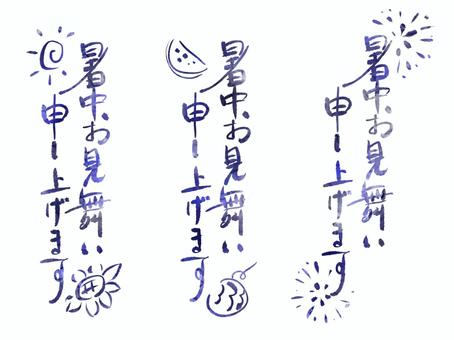 暑中お見舞い
申し上げます
暑中お見舞い
申し上げます
暑中お見舞い
申し上げます